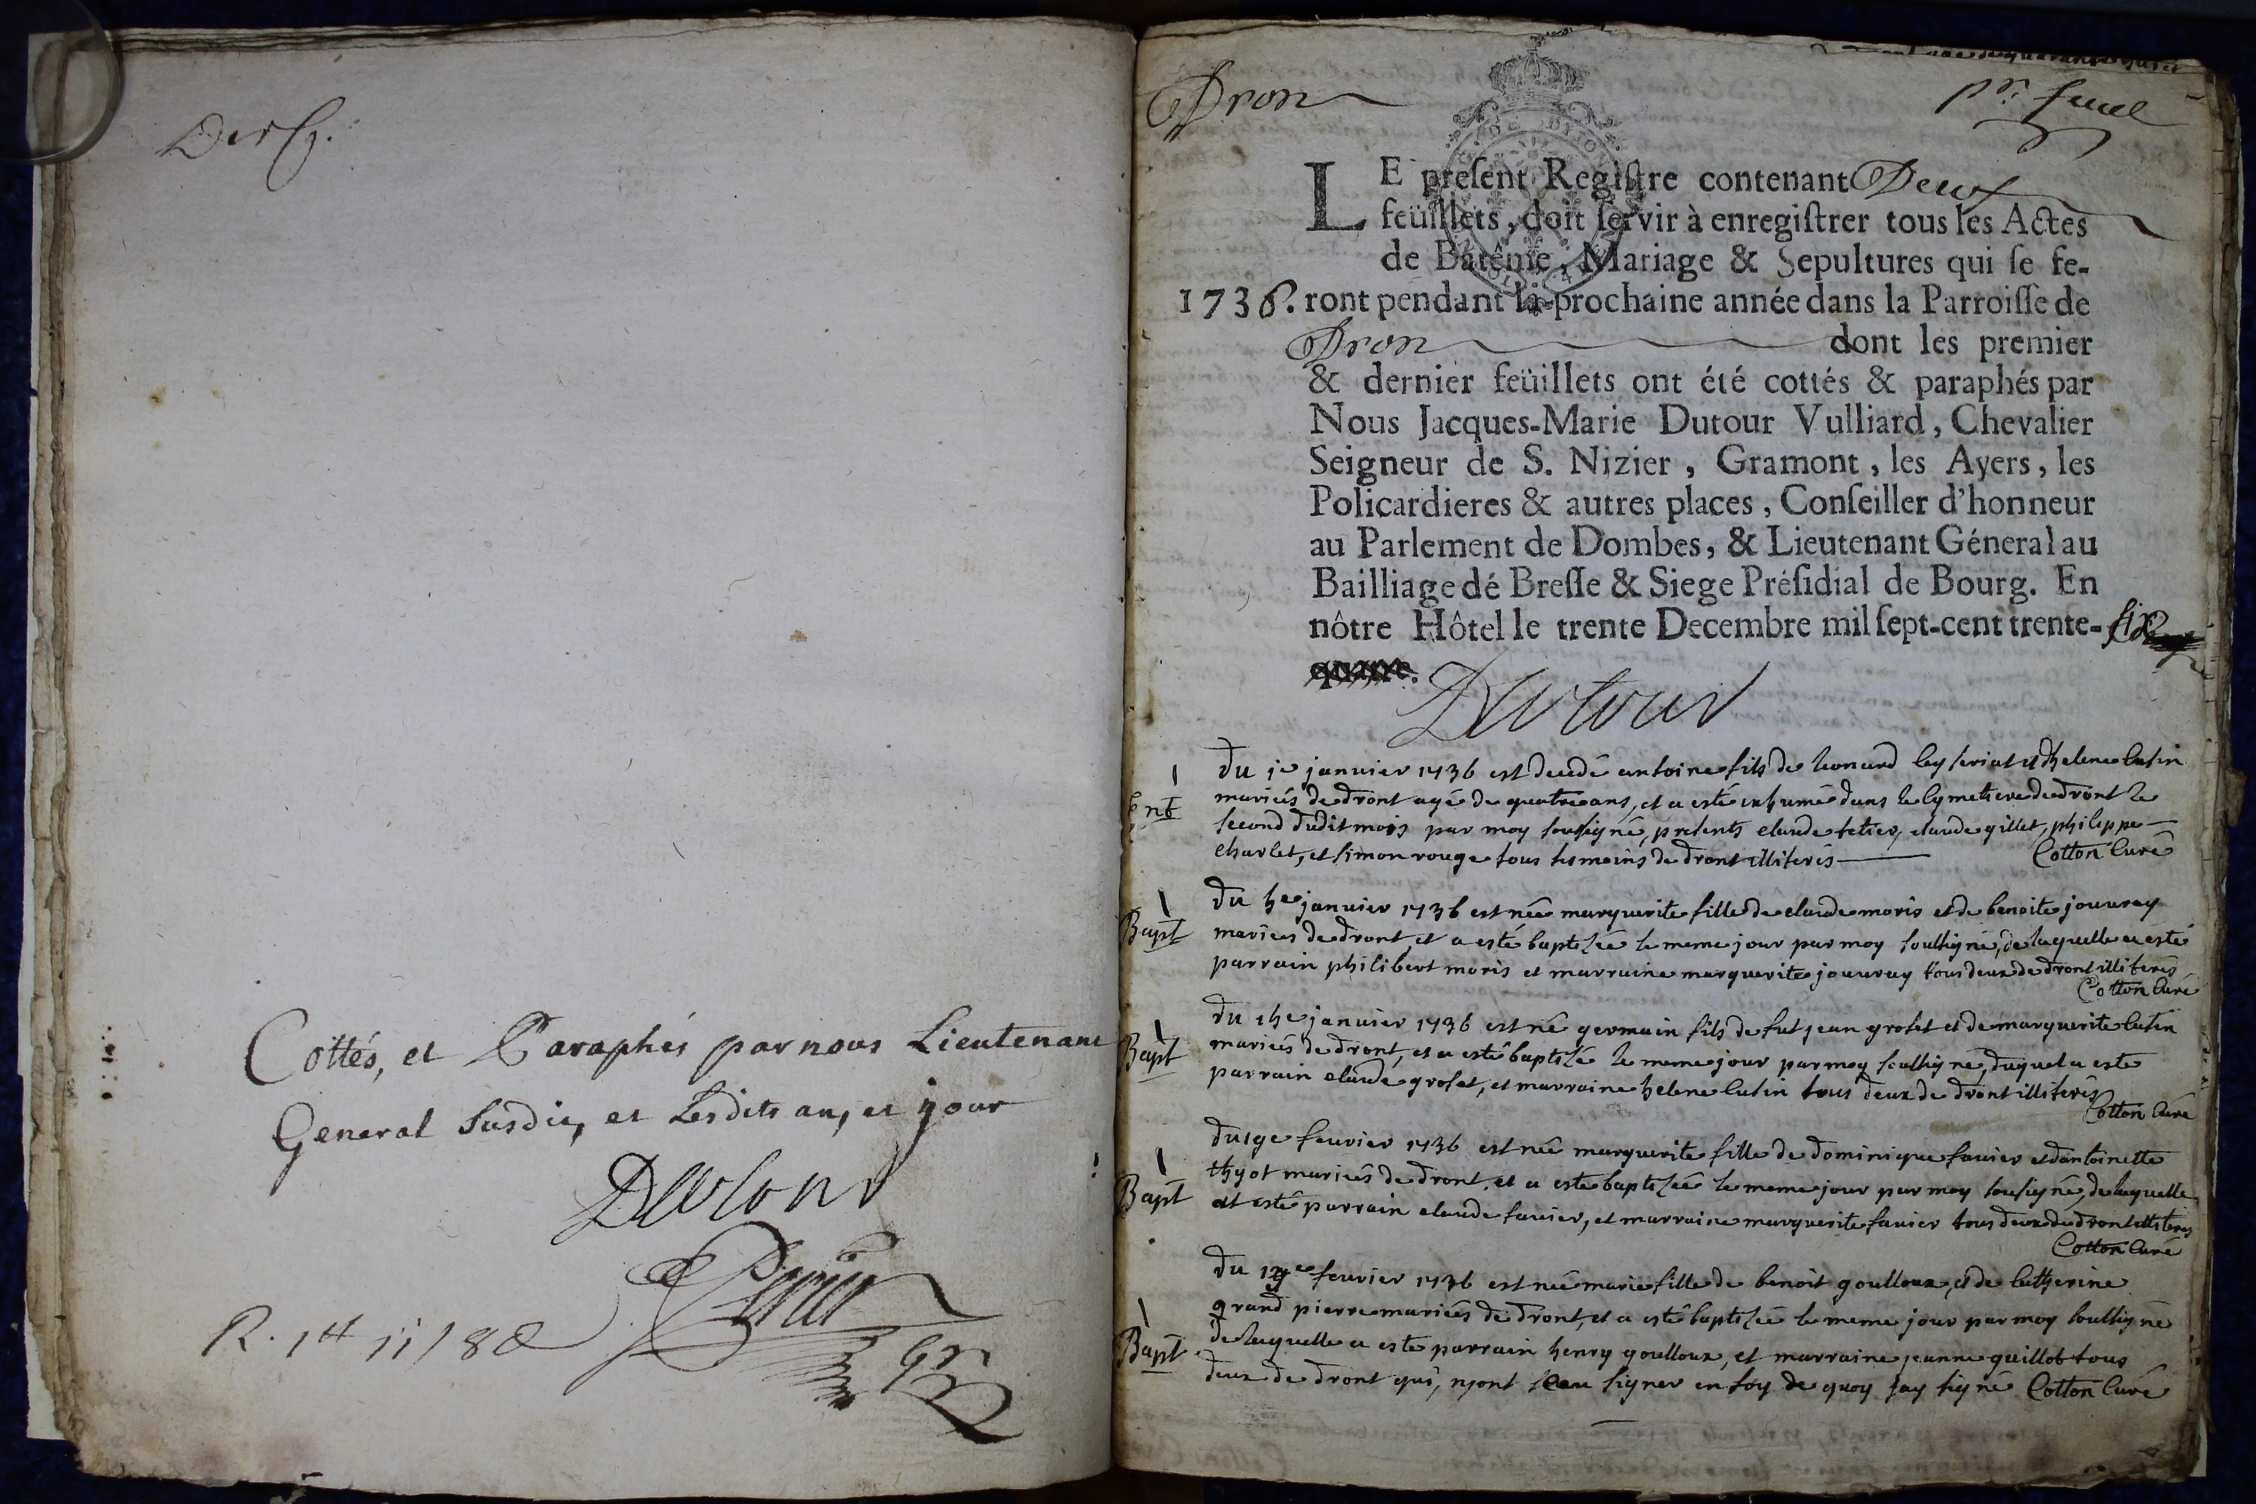 Cottés, et Paraphés par nous Lieutenant
General Susdit, et Lesdits an, et jour
Dutour
Dron
pr. feuel
LE preſent Regiſtre contenant Deux
feüillets, doit ſervir à enregiſtrer tous les Actes
de Batême, Mariage & Sepultures qui ſe fe-
1736. ront pendant la prochaine année dans la Parroiſſe de
Dron dont les premier
& dernier feüillets ont été cottés & paraphés par
Nous Jacques-Marie Dutour Vulliard, Chevalier
Seigneur de S. Nizier, Gramont, les Ayers, les
Policardieres & autres places, Conſeiller d'honneur
au Parlement de Dombes, & Lieutenant Géneral au
Bailliage dé Breſſe & Siege Préſidial de Bourg. En
nôtre Hôtel le trente Decembre mil ſept-cent trente- six
quatre.
Dutour
Du 1e janvier 1736 est decedé antoine fils de leonard et helene lutin
Ent mariés de dront agé de quatre ans, et a esté inhumé dans le cymetiere de dront le
second dudit mois par moy sousigné, presents claude claude gillet, philippe
charlet, et simon rouge tous temoins de dront illiterés Cotton Curé
Du janvier 1736 est née marguerite fille de claude moris et de benoite jouvray
Bapt mariés de dront, et a esté baptisée le meme jour par moy soussigné, de laquelle a esté
parrain philibert moris et marraine marguerite jouvray tous deux de dront illiterés
Cotton Curé
Du janvier 1736 est né germain fils de fut jean groset et de marguerite lutin
Bapt mariés de dront, et a esté baptisé le meme jour par moy soussigné, duquel a esté
parrain claude groset, et marraine helene lutin tous deux de dront illiterés
Cotton Curé
Du 19e fevrier 1736 est née marguerite fille de dominique favier et d'antoinette
thyot mariés de dront, et a esté baptisée le meme jour par moy sousigné, de laquelle
Bapt at esté parrain claude favier, et marraine marguerite favier tous deux de dront illiterés
Cotton Curé
Du fevrier 1736 est née marie fille de benoit goulloux, et de Catherine
grand pierre mariés de dront, et a esté baptisée le meme jour par moy soussigné
Bapt de laquelle a esté parrain henry goulloux, et marraine jeanne guillot tous
deux de dront qui, n'ont sceu signer en foy de quoy jay signé Cotton Curé